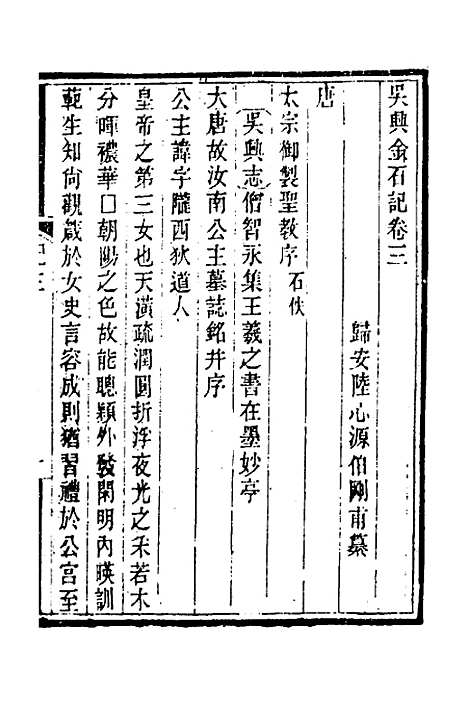 吳興金石記卷三
歸安陸心源伯剛甫纂
唐
太宗御製聖教序石佚
吳興志僧智永集王羲之書在墨妙亭
大唐故汝南公主墓誌銘并序
公主諱字隴西狄道人
皇帝之第三女也天潢疏潤圓折浮夜光之采若木
分暉禯華囗朝陽之色故能聰穎外發閑明內暎訓
範生知尙觀箴於女史言容成則猶習禮於公宫至